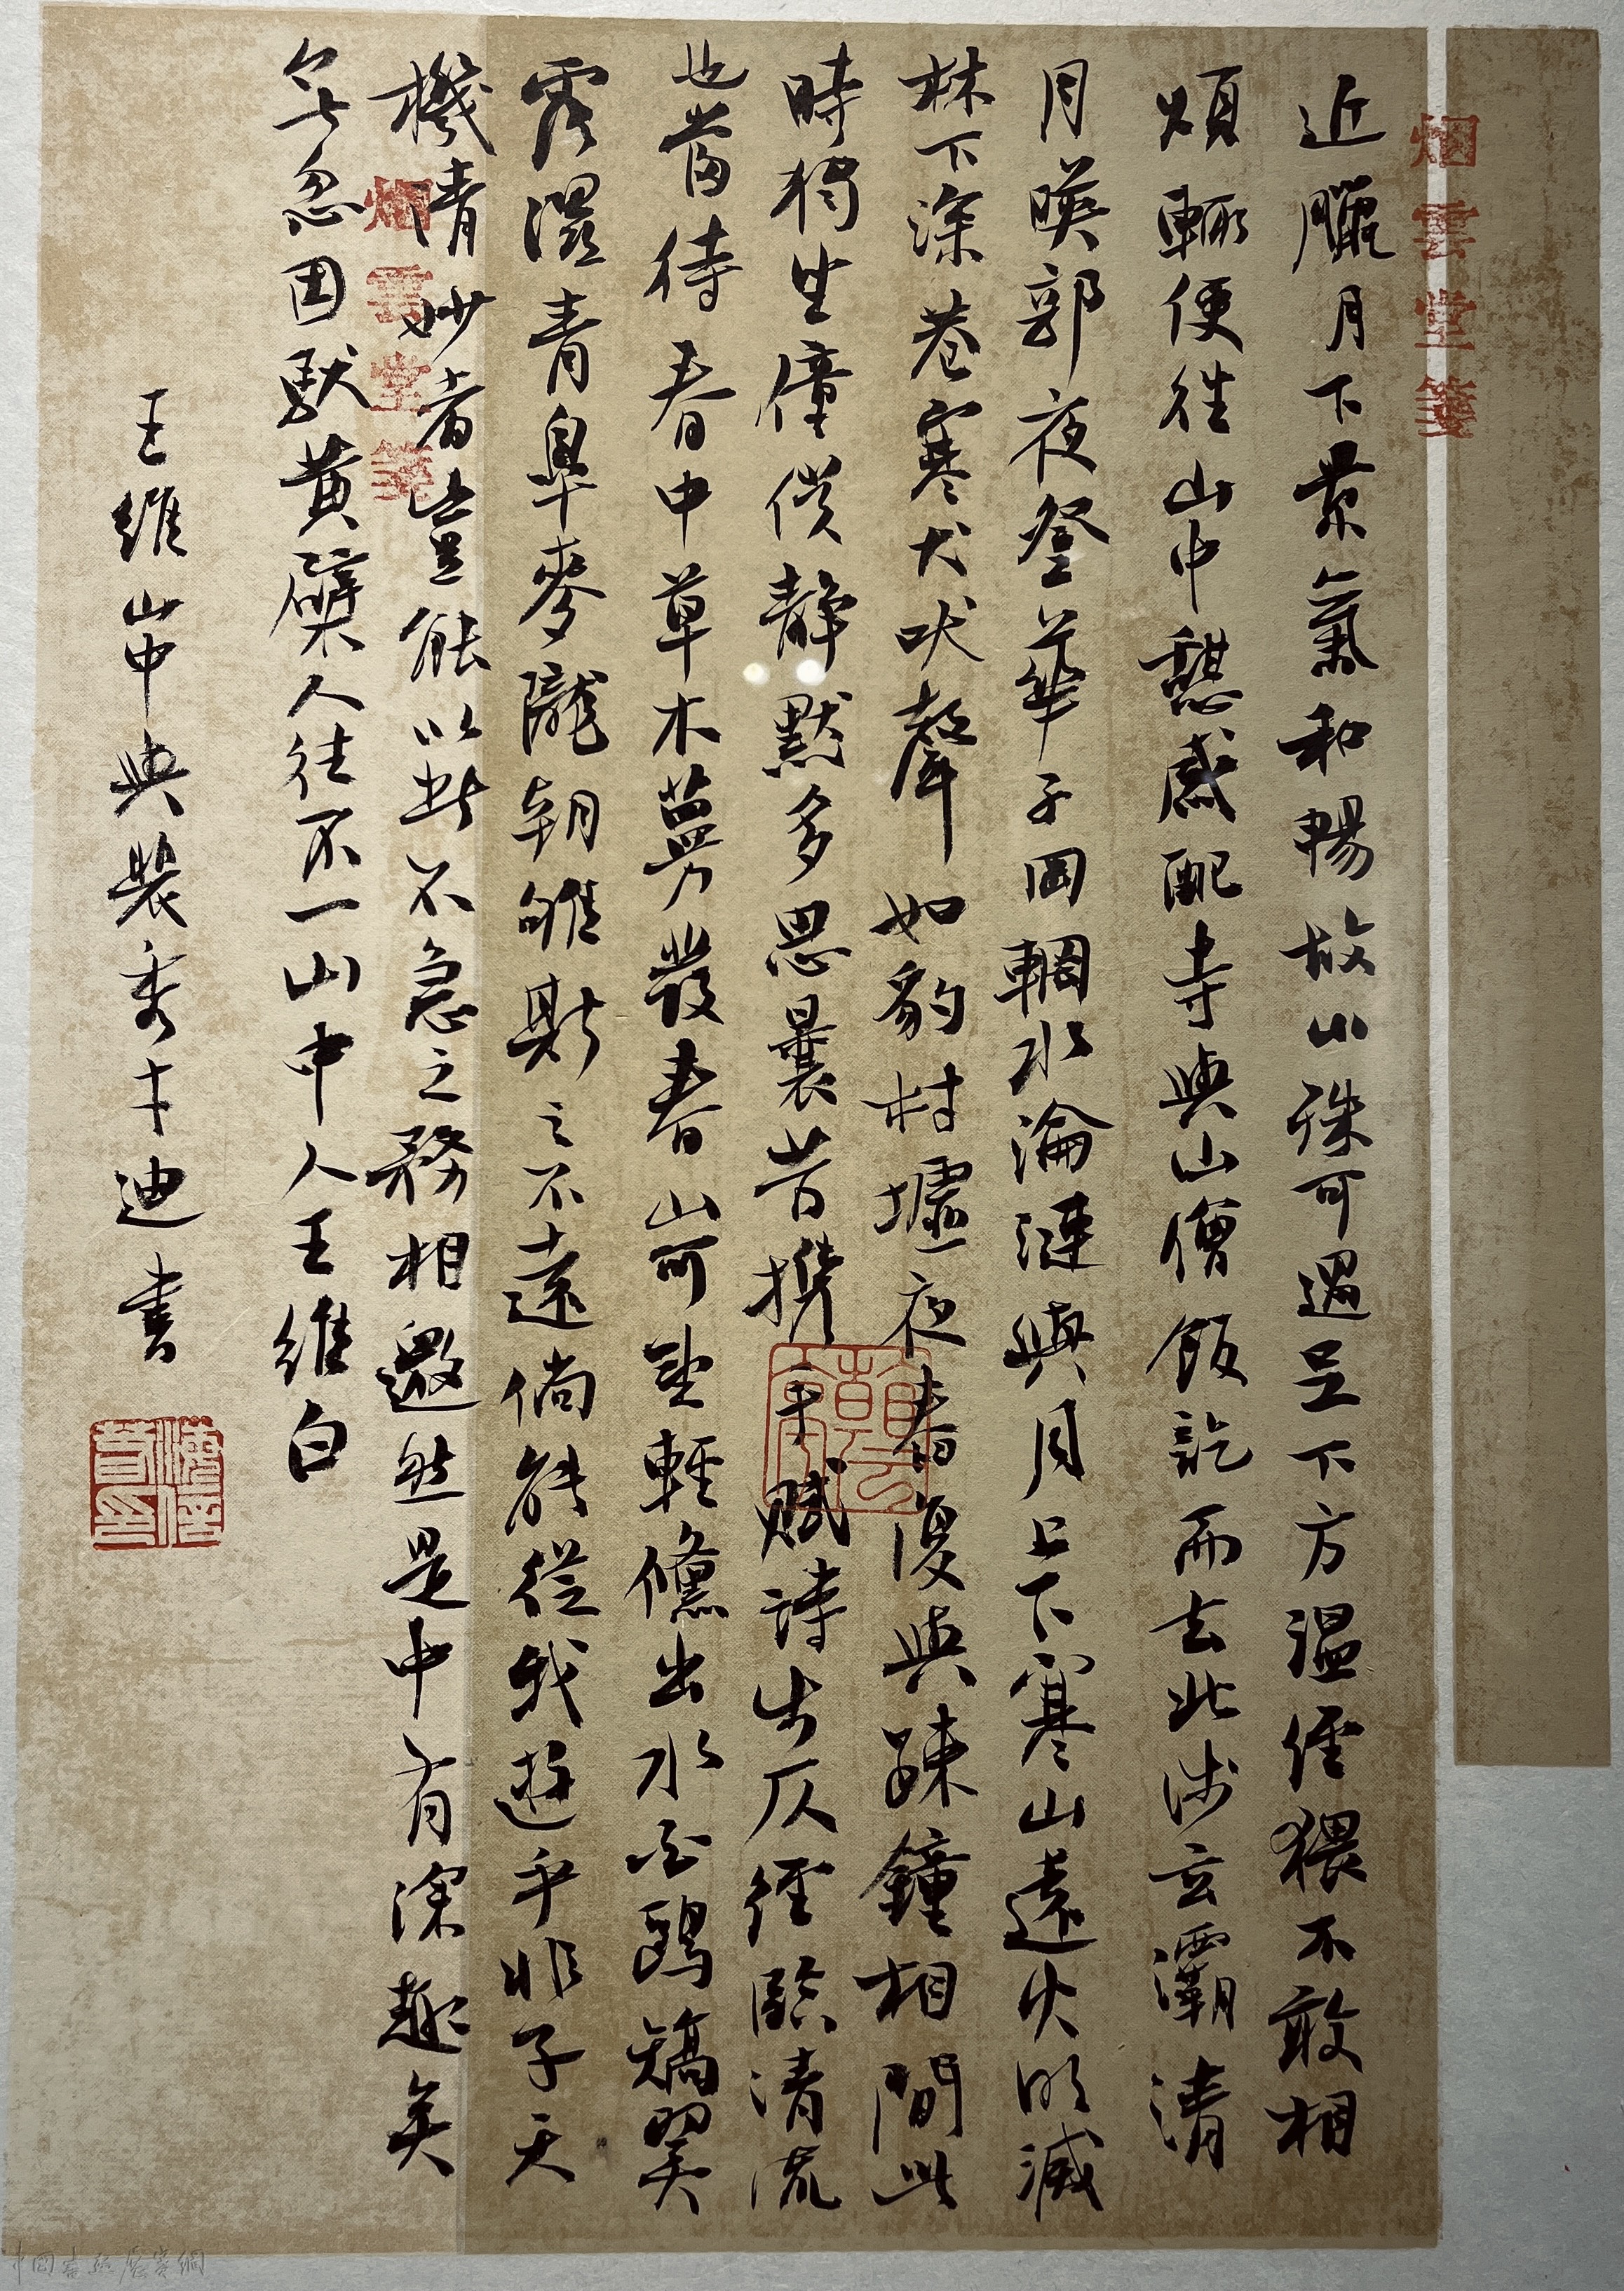 烟雲堂箋
近臘月下景氣和暢故山殊可過足下方溫經猥不敢相
煩輒便往山中憩感配寺與山僧飯訖而去北涉玄灞清
月暎郭夜登華子岡輞水淪漣與月上下寒山遠火明滅
林下深巷寒犬吠聲如豹村墟夜舂復與疎鐘相間此
時獨坐僮僕靜默多思曩昔攜手賦詩步仄徑臨清流
也當待春中草木蔓發春山可望輕鯈出水白鷗矯翼
露濕青皋麥隴朝雊斯之不遠倘能從我遊乎非子天
機清妙者豈能以此不急之務相邀然是中有深趣矣
烟雲堂箋
無忽因馱黃檗人往不一山中人王維白
王維山中與裴秀才迪書